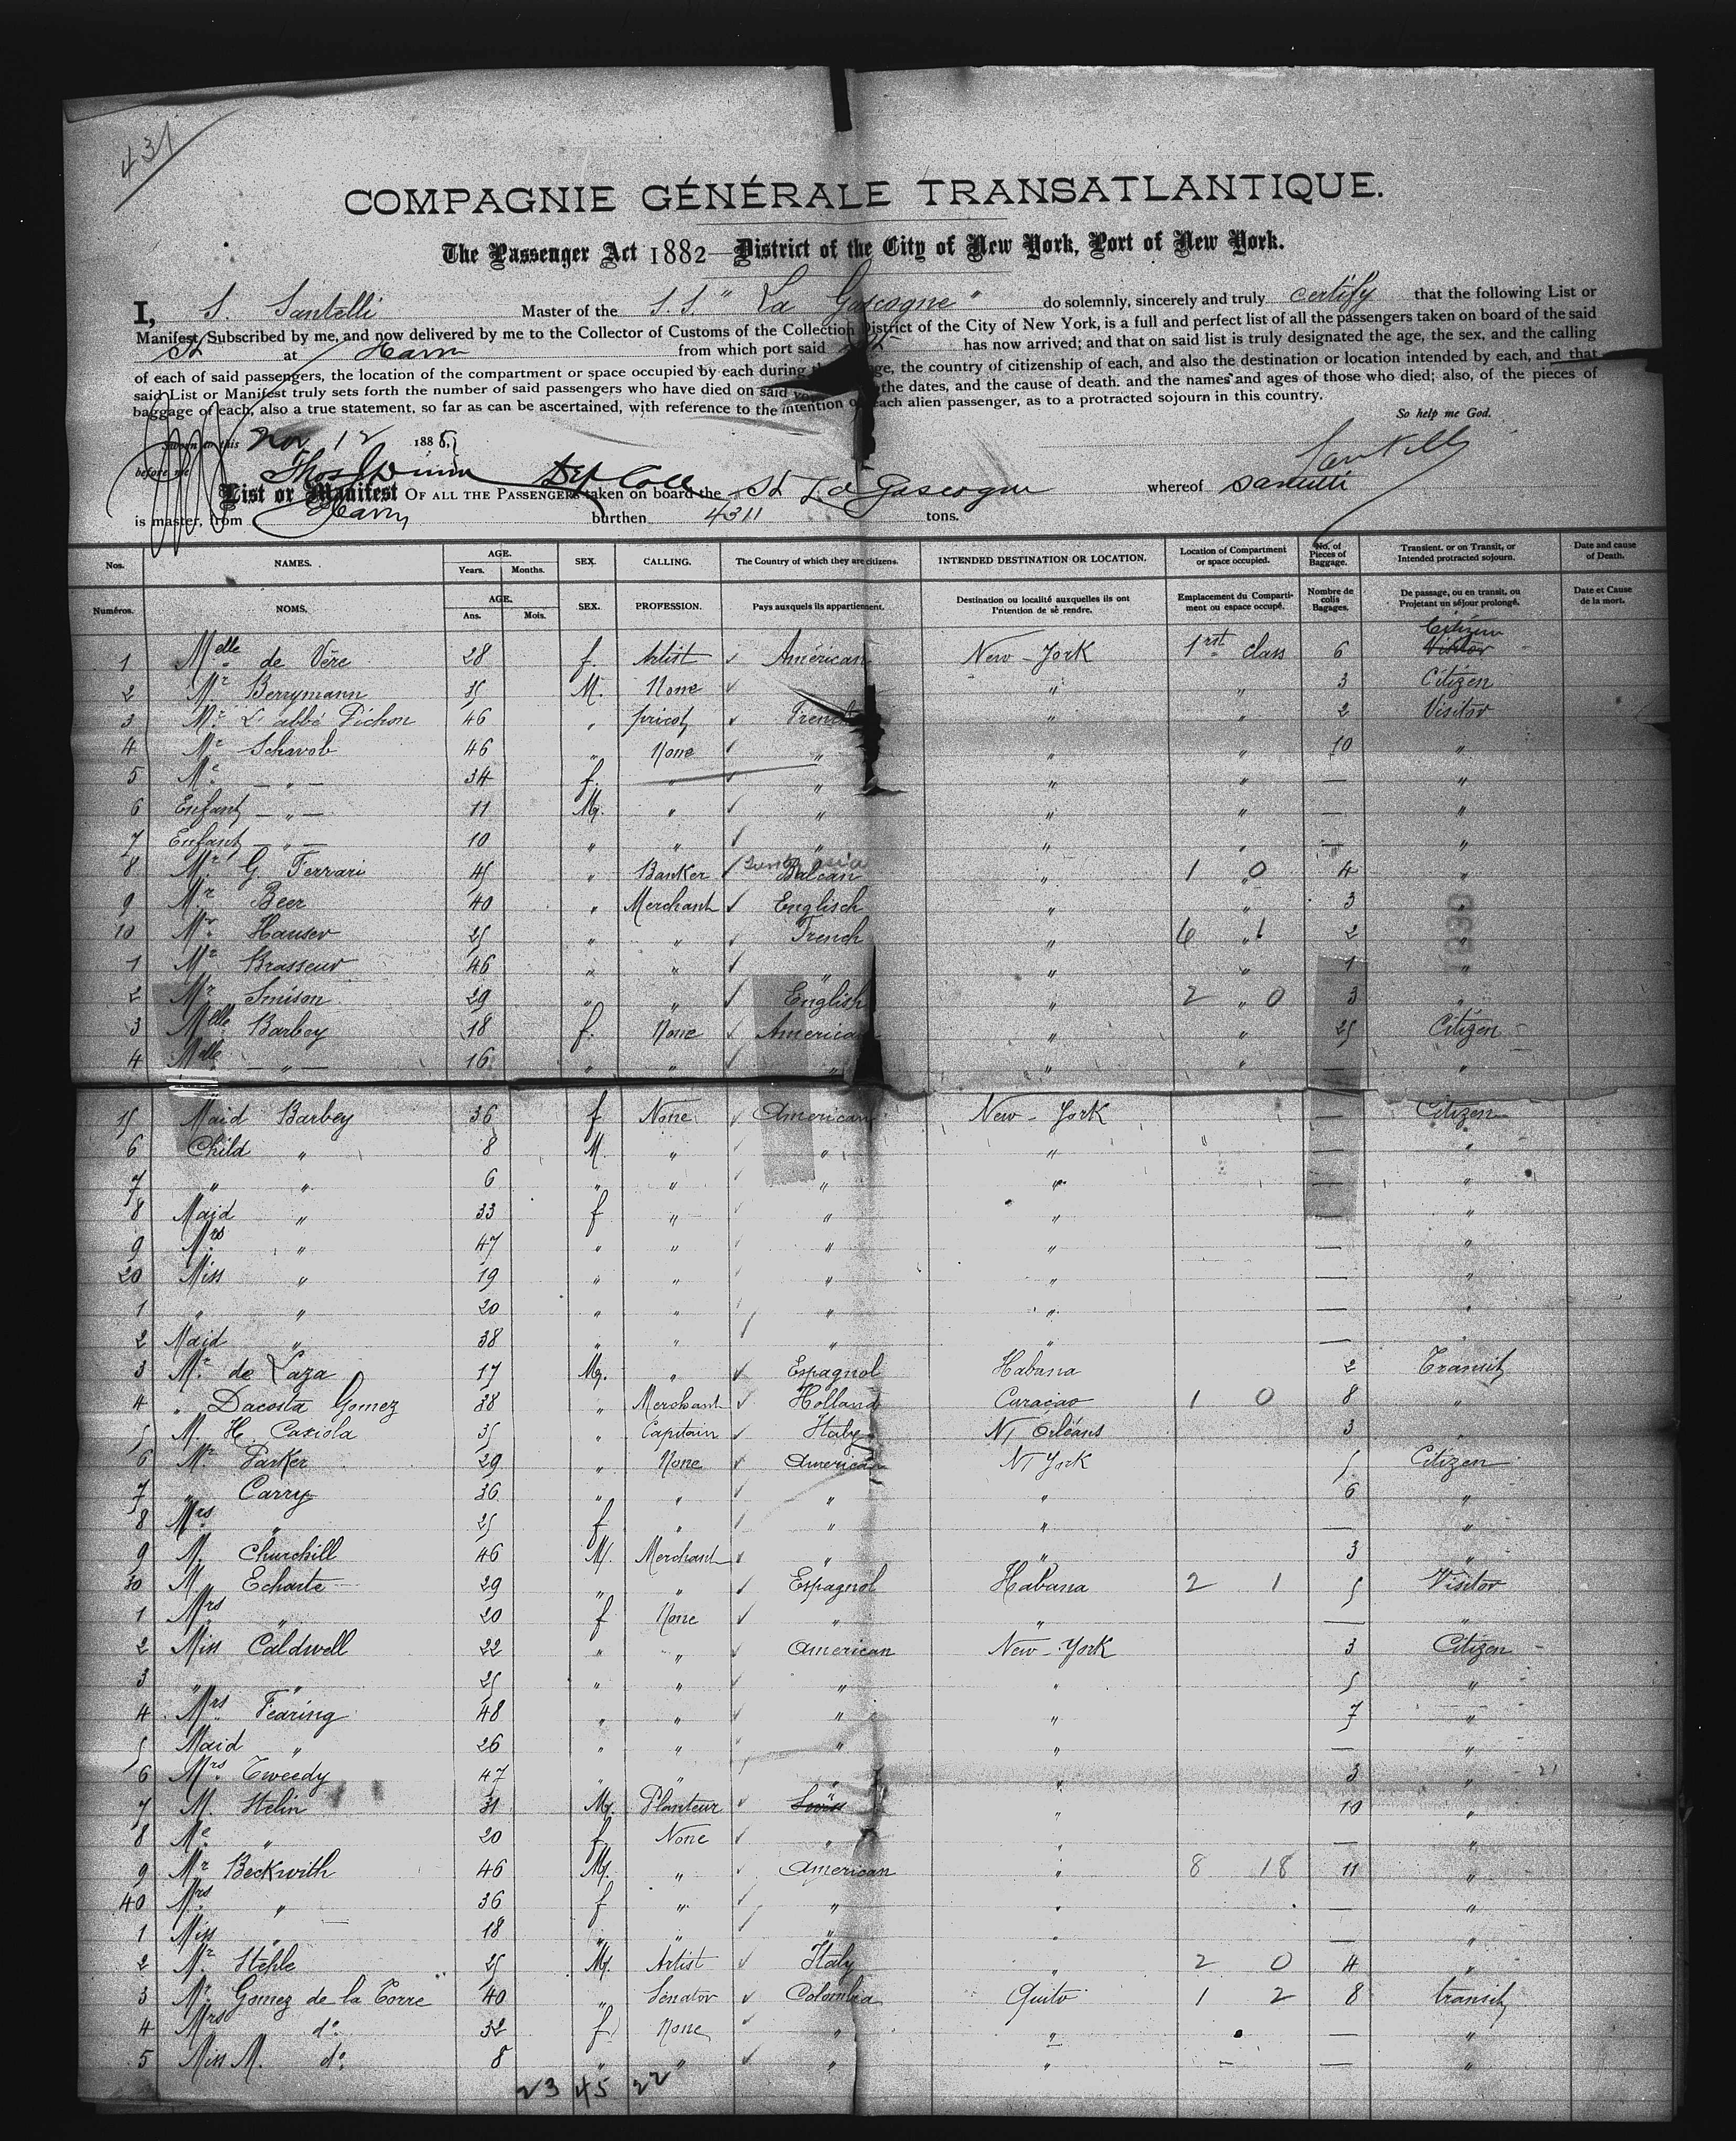 431
COMPAGNIE GÉNÉRALE TRANSATLANTIQUE.
The Passenger Act 1882—District of the City of New York, Port of New York.
I, S. Santelli Master of the S.S. " La Gascogne " do solemnly, sincerely and truly certify that the following List or
Manifest Subscribed by me, and now delivered by me to the Collector of Customs of the Collection District of the City of New York, is a full and perfect list of all the passengers taken on board of the said
at Havre from which port said has now arrived; and that on said list is truly designated the age, the sex, and the calling
of each of said passengers, the location of the compartment or space occupied by each during the the country of citizenship of each, and also the destination or location intended by each, and that
said List or Manifest truly sets forth the number of said passengers who have died on said the dates, and the cause of death. and the names and ages of those who died; also, of the pieces of
baggage of each, also a true statement, so far as can be ascertained, with reference to the intention of each alien passenger, as to a protracted sojourn in this country.
So help me God.
Sworn to this Nov 12 188
before me Santelli
List or Manifest OF ALL THE PASSENGERS taken on board the La Gascogne whereof Santelli
is master, from Havre burthen 4311 tons.
Nos. NAMES. AGE. Years. Months. SEX. CALLING. The Country of which they are citizens. INTENDED DESTINATION OR LOCATION. Location of Compartment or space occupied. No. of Pieces of Baggage. Transient. or on Transit, or Intended protracted sojourn. Date and cause of Death.
Numéros. NOMS. AGE. Ans. Mois. SEX. PROFESSION. Pays auxquels ils appartiennent. Destination ou localité auxquelles ils ont l'intention de se rendre. Emplacement du Compartiment ou espace occupé. Nombre de colis Bagages. De passage, ou en transit, ou Projetant un séjour prolongé. Date et Cause de la mort.
1 Melle de Vère 28 f. Artist ✓ Américan New-York 1rst class 6 Citizen Visitor
2 Mr Berrymann 35 M. None ✓ " " 3 Citizen
3 Mr L'abbé Pichon 46 " priest ✓ French " " 2 Visitor
4 Mr Schwob 46 " None ✓ " " " 10 "
5 Me — " — 34 f. " ✓ " " " — "
6 Enfant — " — 11 M. " ✓ " " " — "
7 Enfant — " — 10 " " ✓ " " " — "
8 Mr G. Ferrari 45 " Banker ✓ " 1 " 0 4 "
9 Mr Beer 40 " Merchant ✓ Englisch " " 3 "
10 Mr Hauser 25 " " ✓ French " 6 " 2 "
1 Mr Brasseur 46 " " ✓ " " " 1 "
2 Mr Smison 29 " " ✓ English " 2 " 0 3 "
3 Melle Barbey 18 f. None ✓ American " " 25 Citizen
4 Melle — " — 16 " " ✓ " " " — "
15 Maid Barbey 36 f None ✓ American New-York — Citizen
6 Child " 8 M. " ✓ " " " — "
7 " " 6 " " ✓ " " — "
8 Maid " 33 f " ✓ " " — "
9 Mrs " 47 " " ✓ " " — "
20 Miss " 19 " " ✓ " " — "
1 " " 20 " " ✓ " " — "
2 Maid " 38 " " ✓ " " — "
3 Mr de Laza 17 M. " ✓ Espagnol Habana 2 Transit
4 " Dacosta Gomez 38 " Merchant ✓ Holland Curaçao 1 0 8 "
5 M. H. Caxiola 35 " Capitain ✓ Italy N Orléans 3 "
6 Mr Parker 29 " None ✓ American N York 5 Citizen
7 " Carry 36 " " ✓ " " 6 "
8 Mrs " 25 f " ✓ " " — "
9 M. Churchill 46 M. Merchant ✓ " " 3 "
30 M. Echarte 29 " " ✓ Espagnol Habana 2 1 5 Visitor
1 Mrs " 20 f None ✓ " " — "
2 Miss Caldwell 22 " " ✓ American New-York 3 Citizen
3 " " 25 " " ✓ " " 5 "
4 Mrs Fearing 48 " " ✓ " " 7 "
5 Maid " 26 " " ✓ " " — "
6 Mrs Tweedy 47 " " " " 3 "
7 M. Stelin 31 M. Planteur ✓ " 10 "
8 Me " 20 f. None ✓ " " — "
9 Mr Beckwith 46 M. " ✓ American " 8 18 11 "
40 Mrs " 36 f " ✓ " " — "
1 Miss " 18 " " ✓ " " — "
2 Mr Stehle 25 M. Artist ✓ Italy " 2 0 4 "
3 Mr Gomez de la Torre 40 " Sénator ✓ Colombia Quito 1 2 8 transit
4 Mrs do 32 f None ✓ " " — "
5 Miss M. do 8 " " ✓ " " — "
23 45 22